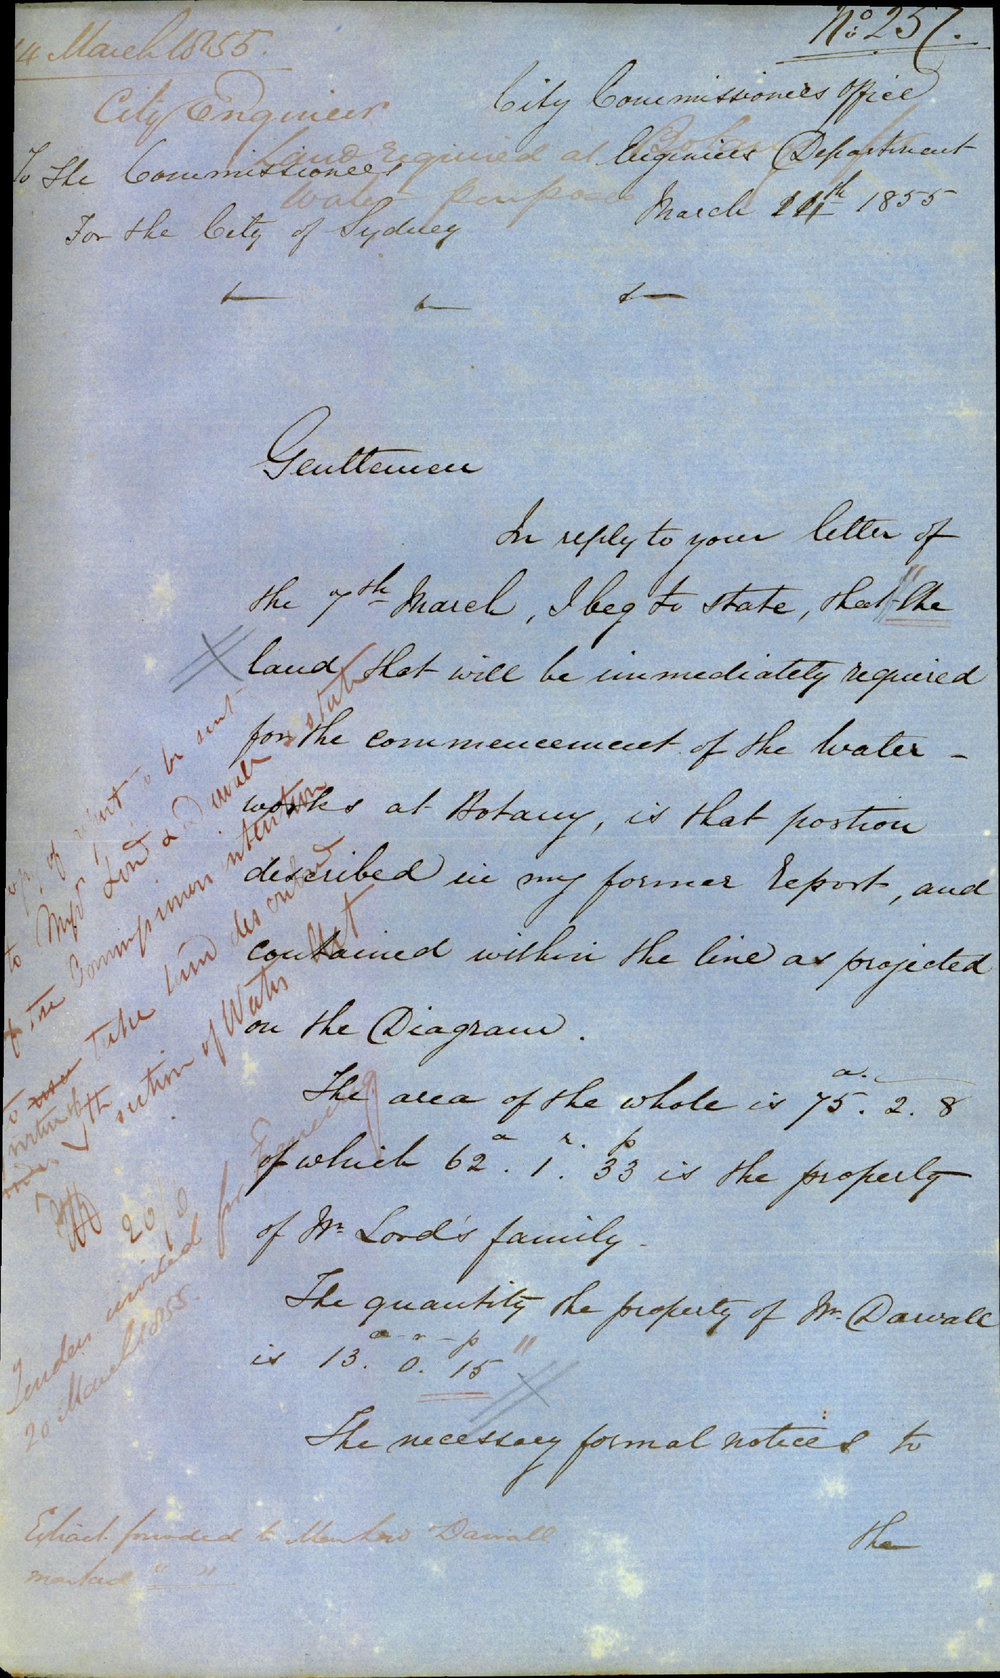 No. 257.
14 March 1855.
City Engineer
Land required at Botany for
Water purposes
City Commissioners Office
Engineers Department
March 14th 1855
To The Commissioners
For the City of Sydney
Gentlemen
In reply to your letter of
the 7th March, I beg to state, that "the
land that will be immediately required
for the commencement of the Water-
works at Botany, is that portion
described in my former Report, and
contained within the line as projected
on the Diagram.
The area of the whole is 75.a. 2. 8
of which 62a. 1r. 33p is the property
of Mr. Lord's family.
The quantity the property of Mr. Darvall
is 13a. 0r. 15p"
The necessary formal notices to
the
to be sent
to Messrs Lord & Darvall stating
the Commissioners intention
to take land described
under section of Water Act
20
Tenders invited for Fencing
20 March 1855.
Extract forwarded to Darvall
marked " "